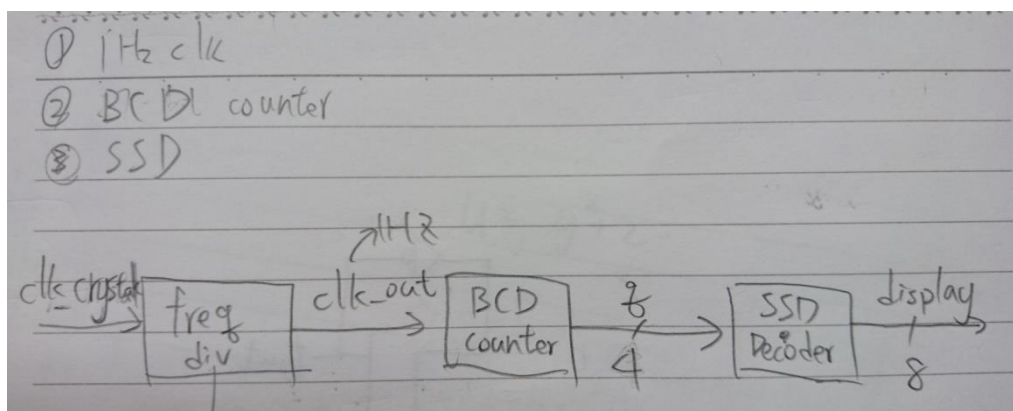 ① 1Hz clk
② BCD counter
③ SSD
1HZ
clk_crystal
freq
div
clk_out
BCD
counter
q
4
SSD
Decoder
display
8